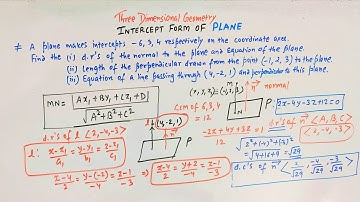 Three Dimensional Geometry
INTERCEPT FORM OF PLANE
# A plane makes intercepts -6, 3, 4 respectively on the coordinate axes.
Find the (i) d.r's of the normal to the plane and Equation of the plane.
(ii) Length of the perpendicular drawn from the point (-1, 2, 3) to the plane.
(iii) Equation of a line passing through (4, -2, 1) and perpendicular to this plane.
MN = |Ax₁ + By₁ + Cz₁ + D| / √A² + B² + C²
d.r's of l <2, -4, -3>
l: x-x₁/a₁ = y-y₁/b₁ = z-z₁/c₁
x-4/2 = y-(-2)/-4 = z-1/-3
l (4, -2, 1)
n
P
x-4/2 = y+2/-4 = z-1/-3
LCM of 6, 3, 4
= 12
(x, y, z) = (-1, 2, 3)
M
n normal
N
P
2x-4y-3z+12=0
-2x + 4y + 3z = 12
d.r's of n <A, B, C>
<2, -4, -3>
√2² + (-4)² + (-3)²
= √4+16+9 = √29
d.c's of n <2/√29, -4/√29, -3/√29>